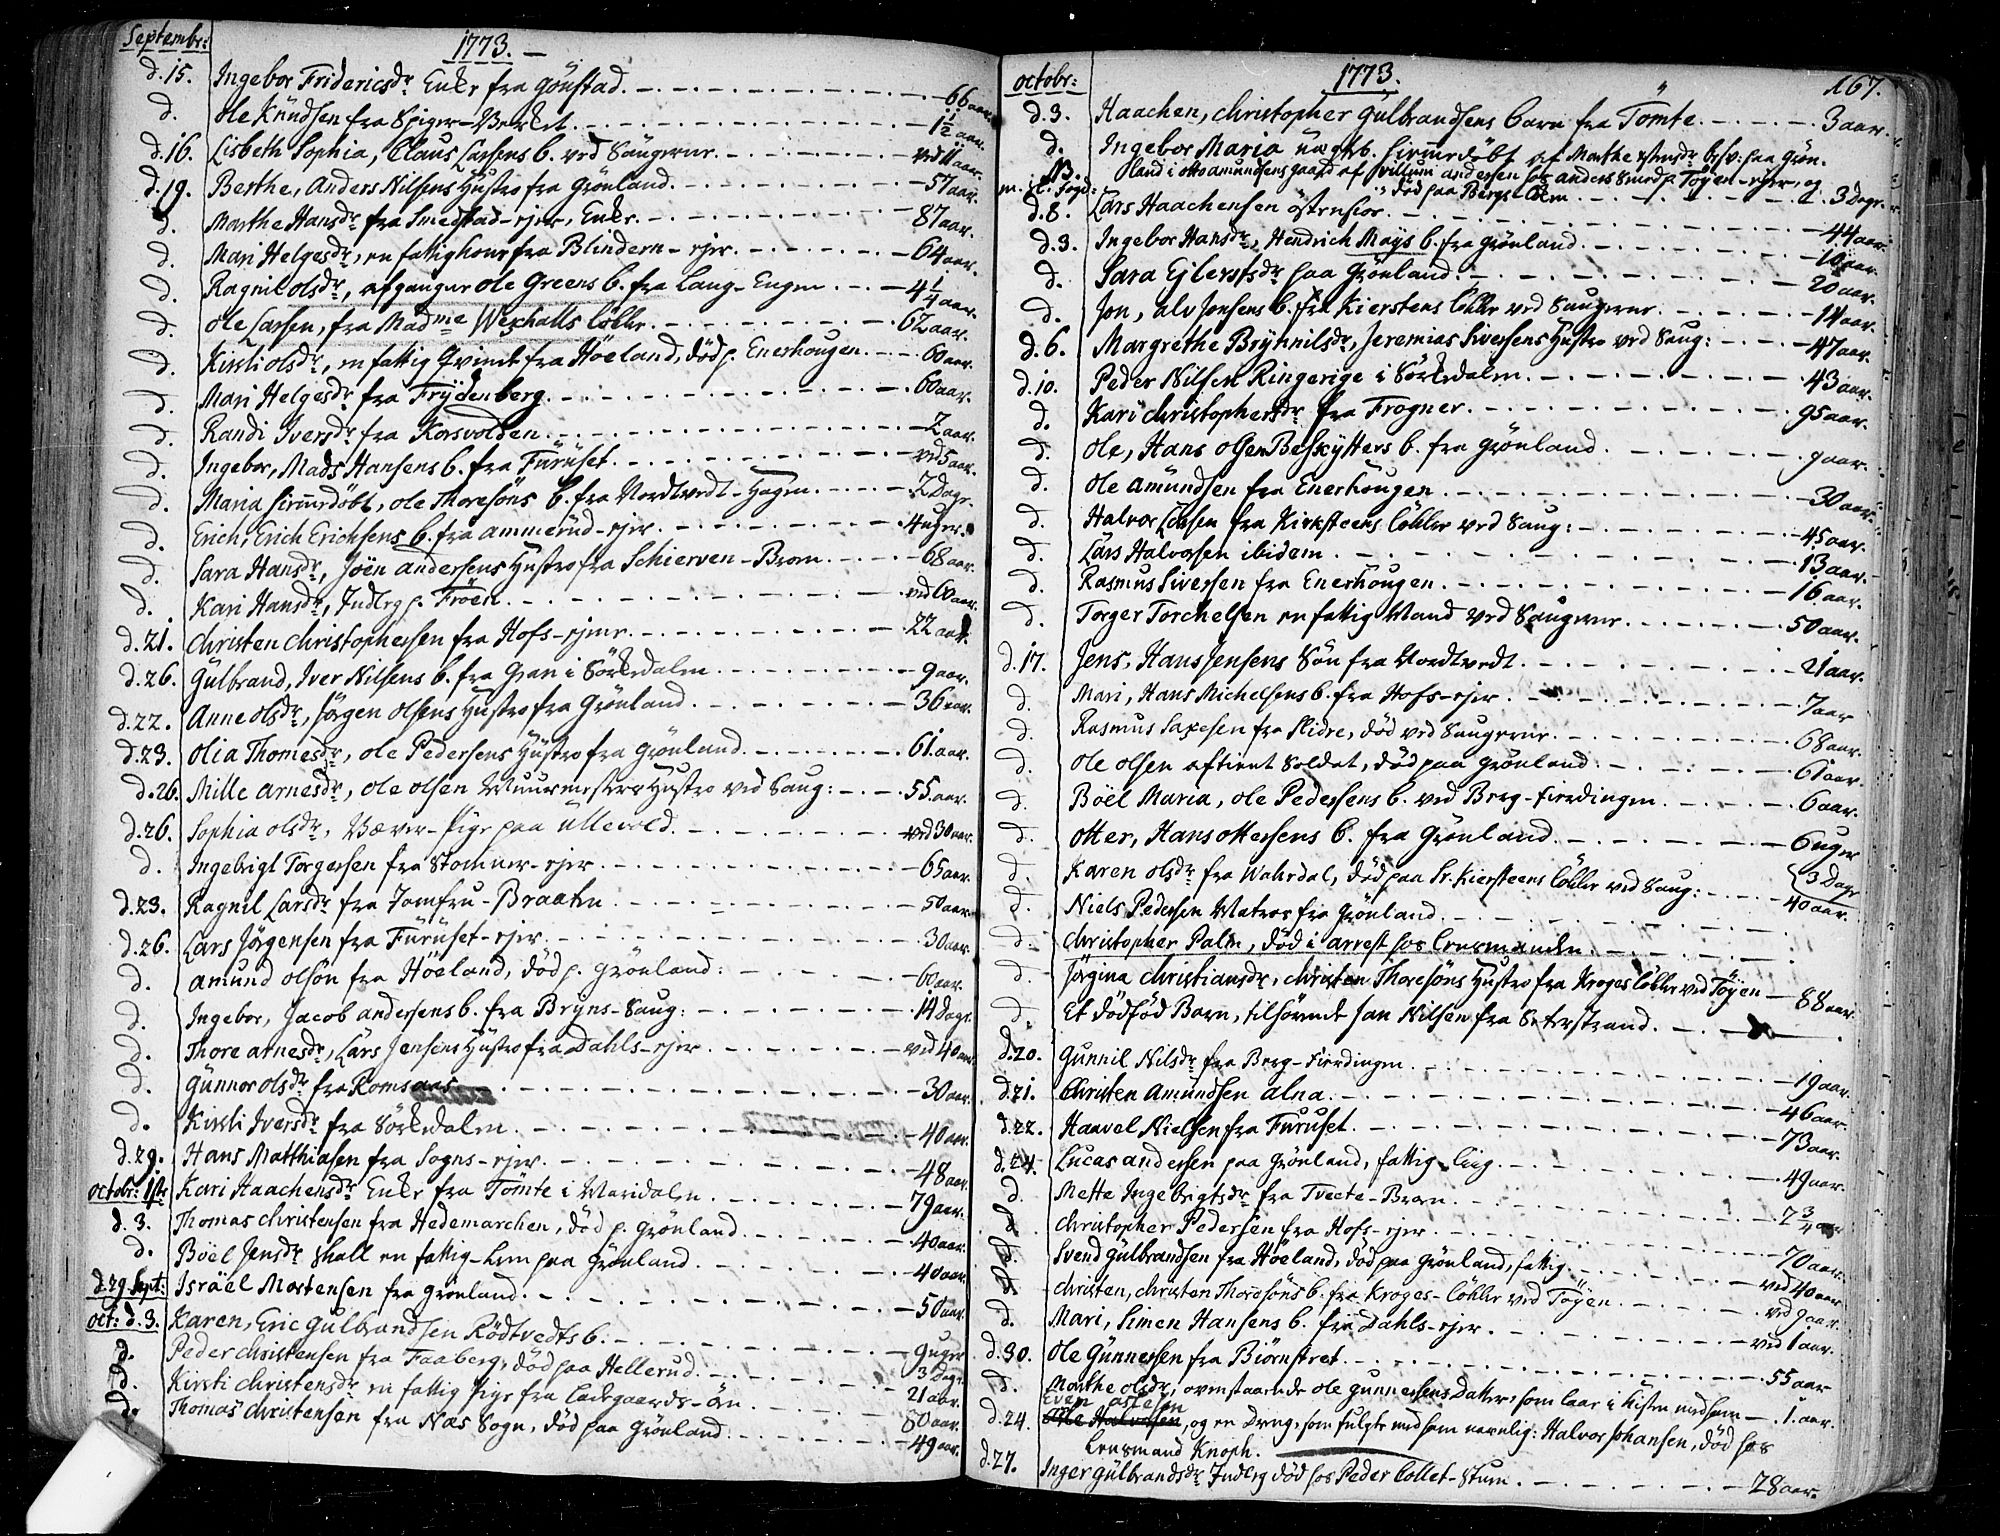 Septembr:
1773.
d. 15. Ingebor Fridericsdr Enke fra Gøustad. 66 aar.
d. Ole Knudsen fra Spiger-Verket. 1½ aar.
d. 16. Lisbeth Sophia, Claus Larsens b. ved Saugerne. ved 11 aar.
d. 19. Berthe, Anders Nilsens Hustro fra Grønland. 57 aar.
d. Marthe Hansdr fra Smedstad-ejer, Enke. 87 aar.
d. Mari Helgesdr, en fattig kone fra Blindern-ejer. 64 aar.
d. Ragnil Olsdr, afgangne Ole Greens b. fra Lang-Engen. 4¼ aar.
d. Ole Larsen, fra Madme Wexhalls Løkke. 62 aar.
d. Kirsti Olsdr, en fattig Qvinde fra Høeland, død p. Enerhougen. 60 aar.
d. Mari Helgesdr fra Frydenberg. 60 aar.
d. Randi Iversdr fra Korsvolden. 2 aar.
d. Ingebor, Mads Hansens b. fra Furuset. ved 5 aar.
d. Maria hiemmedøbt, Ole Thoresøns b. fra Nordtvedt-Hagen. 2 Dage.
d. Erich, Erich Erichsens b. fra Ammerud-ejer. 4 uger.
d. Sara Hansdr, Joen Andersens Hustro fra Schierven-Braten. 68 aar.
d. Kari Hansdr, Inderg p. Frøen. ved 60 aar.
d. 21. Christen Christophersen fra Hofs-ejene. 22 aar.
d. 26. Gulbrand, Iver Nilsens b. fra Gran i Sørkedalen. 9 aar.
d. 22. Anne Olsdr, Jørgen Olsens Hustro fra Grønland. 36 aar.
d. 23. Olia Thomesdr, Ole Pedersens Hustro fra Grønland. 61 aar.
d. 26. Mille Arnesdr, Ole Olsen Muurmesters Hustro ved Saug: 55 aar.
d. 26. Sophia Olsdr, Væver-Pige paa Ullevold. ved 30 aar.
d. Ingebrigt Torgersen fra Stomner-ejer. 65 aar.
d. 23. Ragnil Larsdr fra Jomfru-Braaten. 50 aar.
d. 26. Lars Jørgensen fra Furuset-ejer. 30 aar.
d. Amund Olsøn fra Høeland, død p. Grønland: 60 aar.
d. Ingebor, Jacob Andersens b. fra Bryns-Saug: 14 Dage.
d. Thore Arnesdr, Lars Jensens Hustro fra Dahls-ejer. ved 40 aar.
d. Gunnor Olsdr fra Romsaas 30 aar.
d. Kirsti Iversdr fra Sørkedalen. 40 aar.
d. 29. Hans Matthiasen fra Sogns-ejer. 48 aar.
Octobr: 1ste Kari Haachensdr Enke fra Tømte i Maridalen. 79 aar.
d. 3. Thomas Christensen fra Hedemarchen, død p. Grønland. 40 aar.
d. Bøel Jensdr Skall en fattig-Lem paa Grønland. 40 aar.
d. 29. Sept: Israël Mortensen fra Grønland. 50 aar.
Oct: d. 3. Karen, Eric Gulbrandsen Rødtvedts b. 9 uger
d. Peder Christensen fra Faaberg, død paa Hellerud. 3 Dage.
d. Kirsti Christensdr en fattig Pige fra Ladegaards-Øen 21 aar.
d. Thomas Christensen fra Næs Sogn, død paa Grønland. 80 aar.
49 aar.
Octobr:
1773.
167.
d. 3. Haachen, Christopher Gulbrandsens barn fra Tømte. 3 aar.
d. Ingebor Maria uægte b. hiemmedøbt af Marthe Østensdr besv: paa Grøn.
NB. land i Otto Amundsens gaard af Villum Andersen hos Anders Smed p. Tøyen-ejer, og
død paa Bergs-Løkken 3 Dage.
d. 8. Lars Haachensen Østensioe. 44 aar.
d. 3. Ingebor Hansdr, Hendrich Mays b. fra Grønland. 10 aar.
d. Sara Ejlertsdr paa Grønland. 20 aar.
d. Jon, Alv Jonsens b. fra Kierstens Løkke ved Saugerne. 14 aar.
d. 6. Margrethe Brynnilsdr, Jeremias Siversens Hustro ved Saug: 47 aar.
d. 10. Peder Nilsen Ringerige i Sørkedalen. 43 aar.
d. Kari Christophersdr fra Frogner. 95 aar.
d. Ole, Hans Olsen Beskytters b. fra Grønland. 9 aar.
d. Ole Amundsen fra Enerhougen. 30 aar.
d. Halvor Larsen fra Kirksteens Løkke ved Saug: 45 aar.
d. Lars Halvorsen ibidem. 13 aar.
d. Rasmus Siversen fra Enerhougen. 16 aar.
d. Torger Torchelsen en fattig Mand ved Saugerne. 50 aar.
d. 17. Jens, Hans Jensens Søn fra Nordtvedt. 21 aar.
d. Mari, Hans Michelsens b. fra Hofs-ejer. 7 aar
d. Rasmus Saxesen fra Slidre, død ved Saugerne. 68 aar.
d. Ole Olsen aftient Soldat, død paa Grønland. 61 aar.
d. Bøel Maria, Ole Pedersens b. ved Berg-Fierdingen. 6 aar.
d. Otter, Hans Ottersens b. fra Grønland. 6 uger
d. Karen Olsdr fra Wahrdal, død paa Sr. Kiersteens Løkke ved Saug: 3 Dage
d. Niels Pedersen Matros fra Grønland. 40 aar.
d. Christopher Palm, død i arrest hos Lensmanden.
d. Jørgina Christiansdr, Christen Thoresøns Hustro fra Kroges Løkke ved Tøyen 88 aar.
d. Et dødfød Barn, tilhørende Jan Nilsen fra Seterstrand.
d. 20. Gunnil Nilsdr fra Berg-Fierdingen 19 aar.
d. 21. Christen Amundsen Alna. 46 aar.
d. 22. Haavel Nielsen fra Furuset. 73 aar.
d. 24. Lucas Andersen paa Grønland, fattig Liig. 49 aar.
d. Mette Ingebrigtsdr fra Tveete-Braten. 2¾ aar
d. Christopher Pedersen fra Hofs-ejer. 70 aar.
d. Svend Gulbrandsen fra Høeland, død paa Grønland, fattig. ved 40 aar
d. Christen, Christen Thoresøns b. fra Kroges-Løkke ved Tøyen ved 9 aar.
d. Mari, Simen Hansens b. fra Dahls-ejer. ved 1 aar.
d. 30. Ole Gunnersen fra Biørnstret. 55 aar
d. Marthe Olsdr, ovenstaaende Ole Gunnersens Datter, som laae i kisten med ham 1. aar.
d. 24. Even , og en Dreng, som fulgte med ham navnlig: Halvor Johansen, død hos
Lensmand Knoph.
d. 27. Inger Gulbrandsdr Inderg død hos Peder Collet-Stuen. 28 aar.